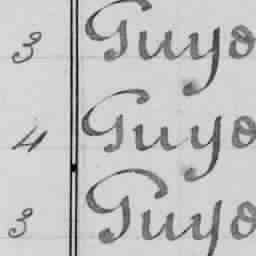 3 Guyo
4 Guyo
3 Guyo